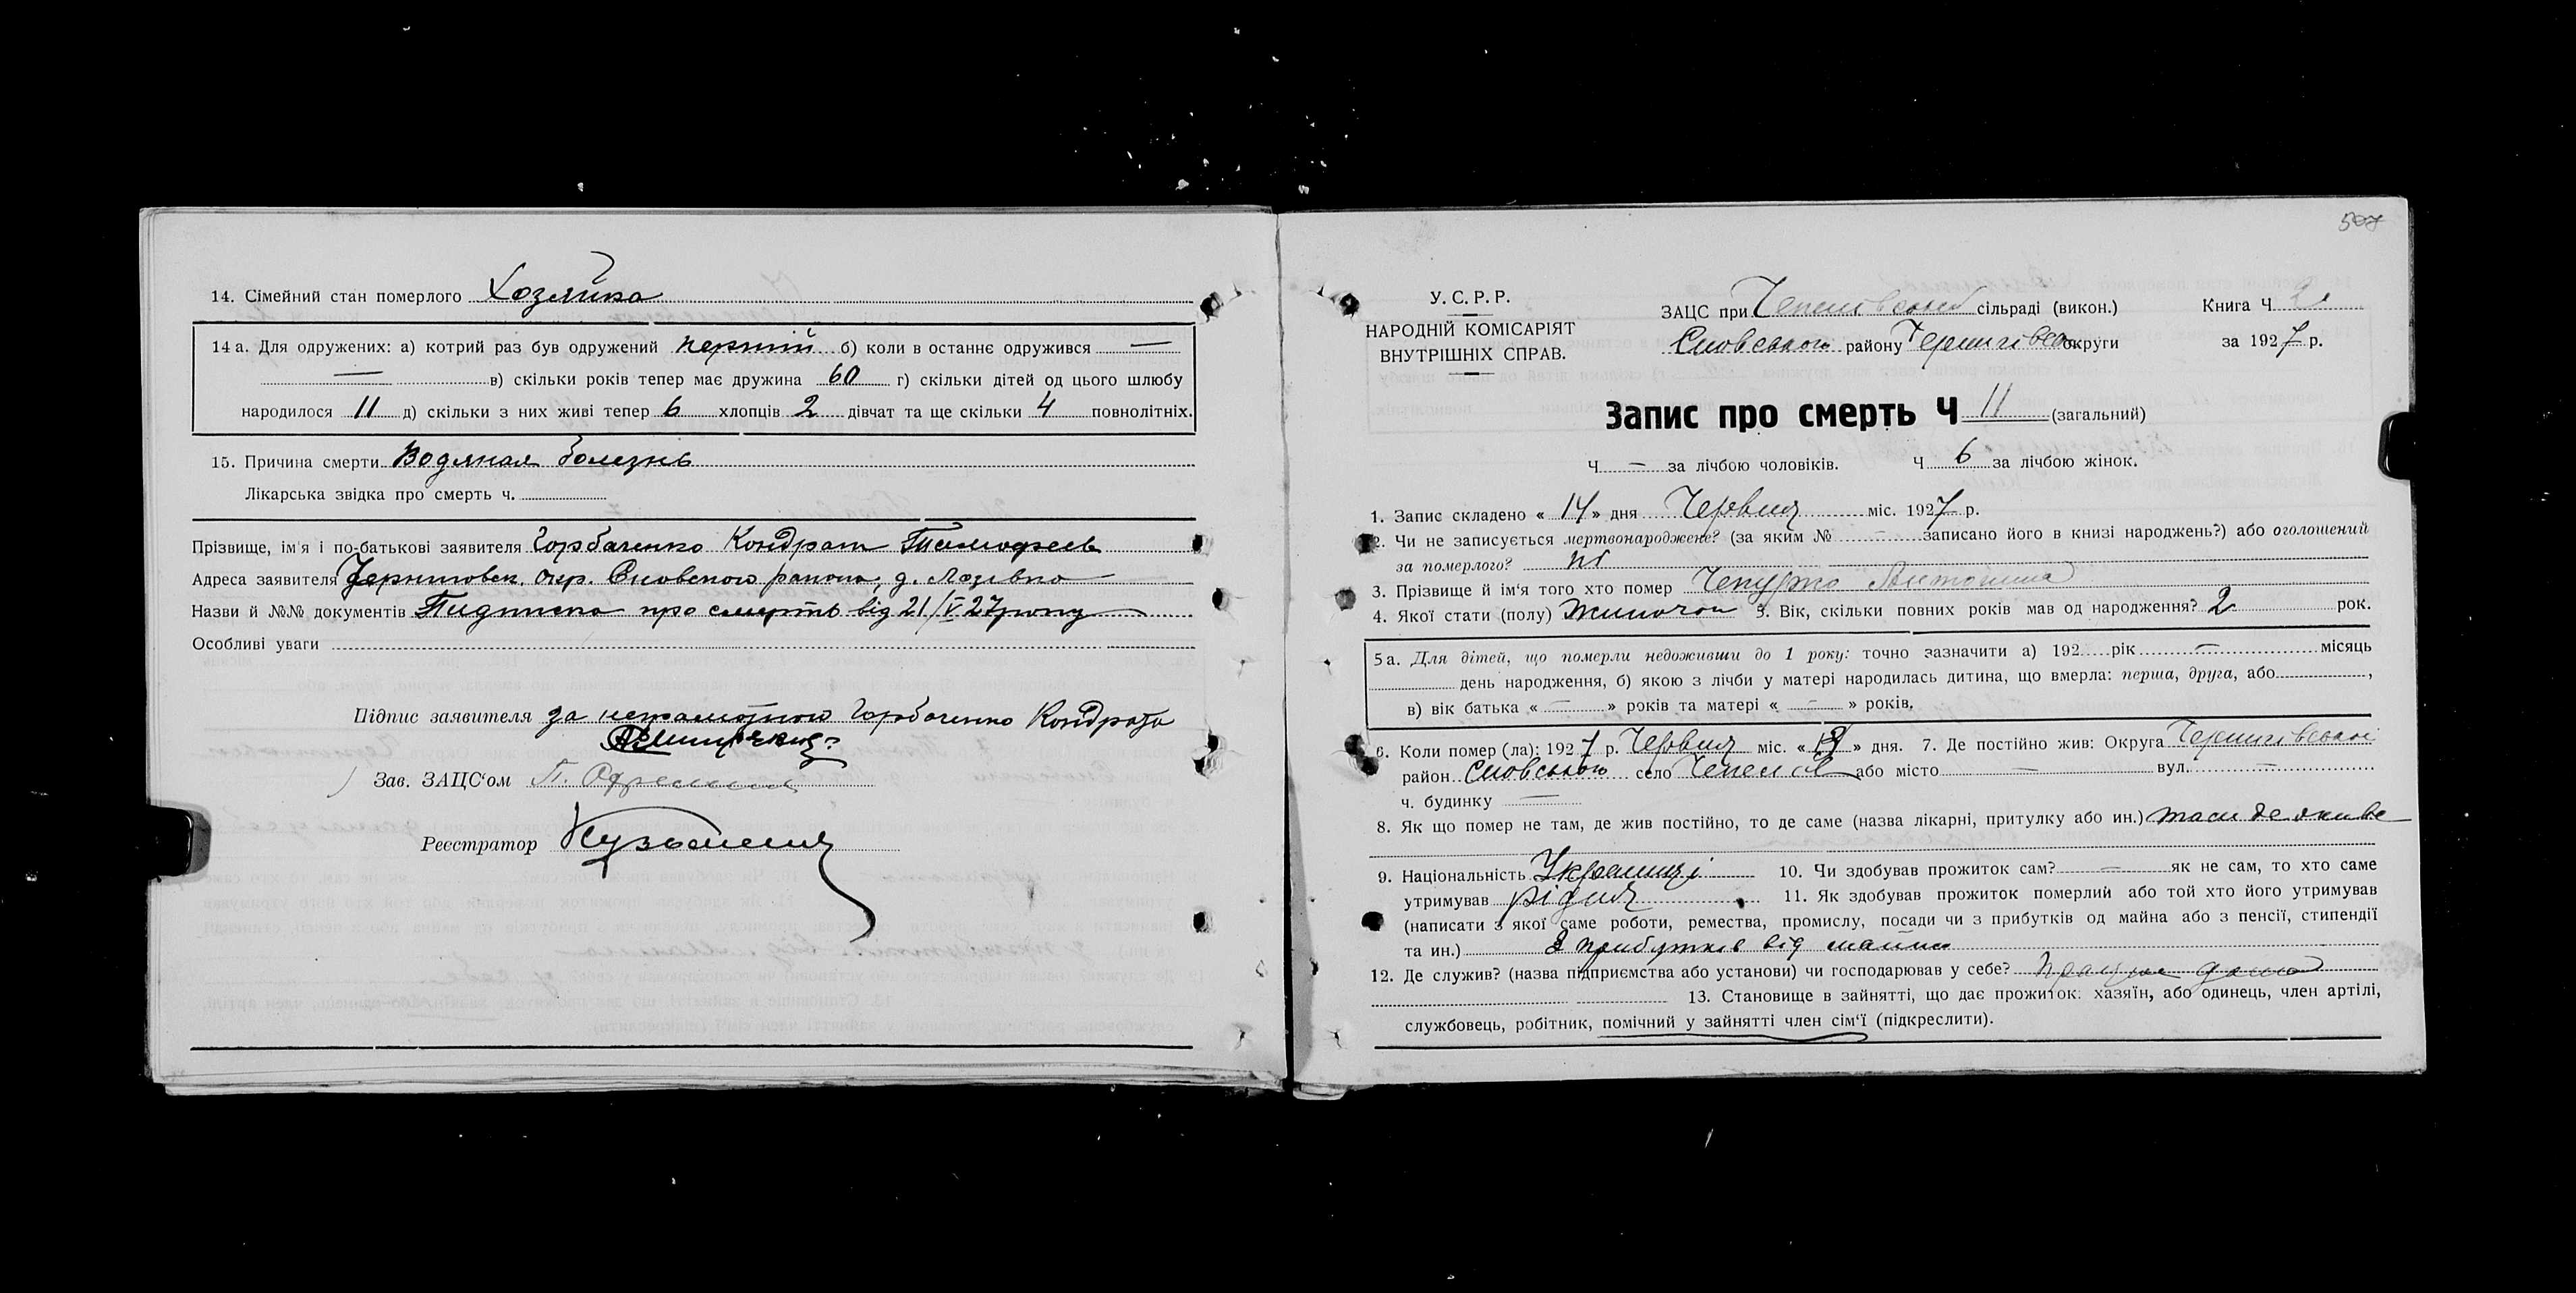 14. Сімейний стан померлого Хозяйка
14 а. Для одружених: а) котрий раз був одружений перший б) коли в останнє одружився —
— в) скільки років тепер має дружина 60 г) скільки дітей од цього шлюбу
народилося 11 д) скільки з них живі тепер 6 хлопців 2 дівчат та ще скільки 4 повнолітніх.
15. Причина смерти Водяная болезнь
Лікарська звідка про смерть ч.
Прізвище, ім'я і по-батькові заявителя Горбаченко Кондрат Тимофеев
Адреса заявителя Черниговск. окр. Сновского района, д. Лазевка
Назви й №№ документів Пидписка про смерть від 21/V 27 року
Особливі уваги
Підпис заявителя за неграмотного Горбаченко Кондрата
Зав. ЗАЦС'ом П.
Реєстратор
507
У. С. Р. Р.
НАРОДНІЙ КОМІСАРІЯТ
ВНУТРІШНІХ СПРАВ.
ЗАЦС при сільраді (викон.) Книга Ч
Сновського району округи за 1927 р.
Запис про смерть Ч 11 (загальний)
Ч — за лічбою чоловіків. Ч 6 за лічбою жінок.
1. Запис складено « 14 » дня Червня міс. 1927 р.
2. Чи не записується мертвонароджене? (за яким № — записано його в книзі народжень?) або оголошений
за померлого? ні
3. Прізвище й ім'я того хто помер Чепурко Антонина
4. Якої стати (полу) Жиночої 5. Вік, скільки повних років мав од народження? 2 рок.
5 а. Для дітей, що померли недоживши до 1 року: точно зазначити а) 192 рік — місяць
день народження, б) якою з лічби у матері народилась дитина, що вмерла: перша, друга, або ,
в) вік батька « — » років та матері « — » років.
6. Коли помер (ла): 1927 р. Червня міс. « » дня. 7. Де постійно жив: Округа Чернигівської
район Сновського село або місто — вул. —
ч. будинку —
8. Як що помер не там, де жив постійно, то де саме (назва лікарні, притулку або ин.) там де живе
9. Національність Українці 10. Чи здобував прожиток сам? — як не сам, то хто саме
утримував рідня 11. Як здобував прожиток померлий або той хто його утримував
(написати з якої саме роботи, ремества, промислу, посади чи з прибутків од майна або з пенсії, стипендії
та ин.) З прибутків від майна
12. Де служив? (назва підприємства або установи) чи господарював у себе?
13. Становище в зайнятті, що дає прожиток: хазяїн, або одинець, член артілі,
службовець, робітник, помічний у зайнятті член сім'ї (підкреслити).